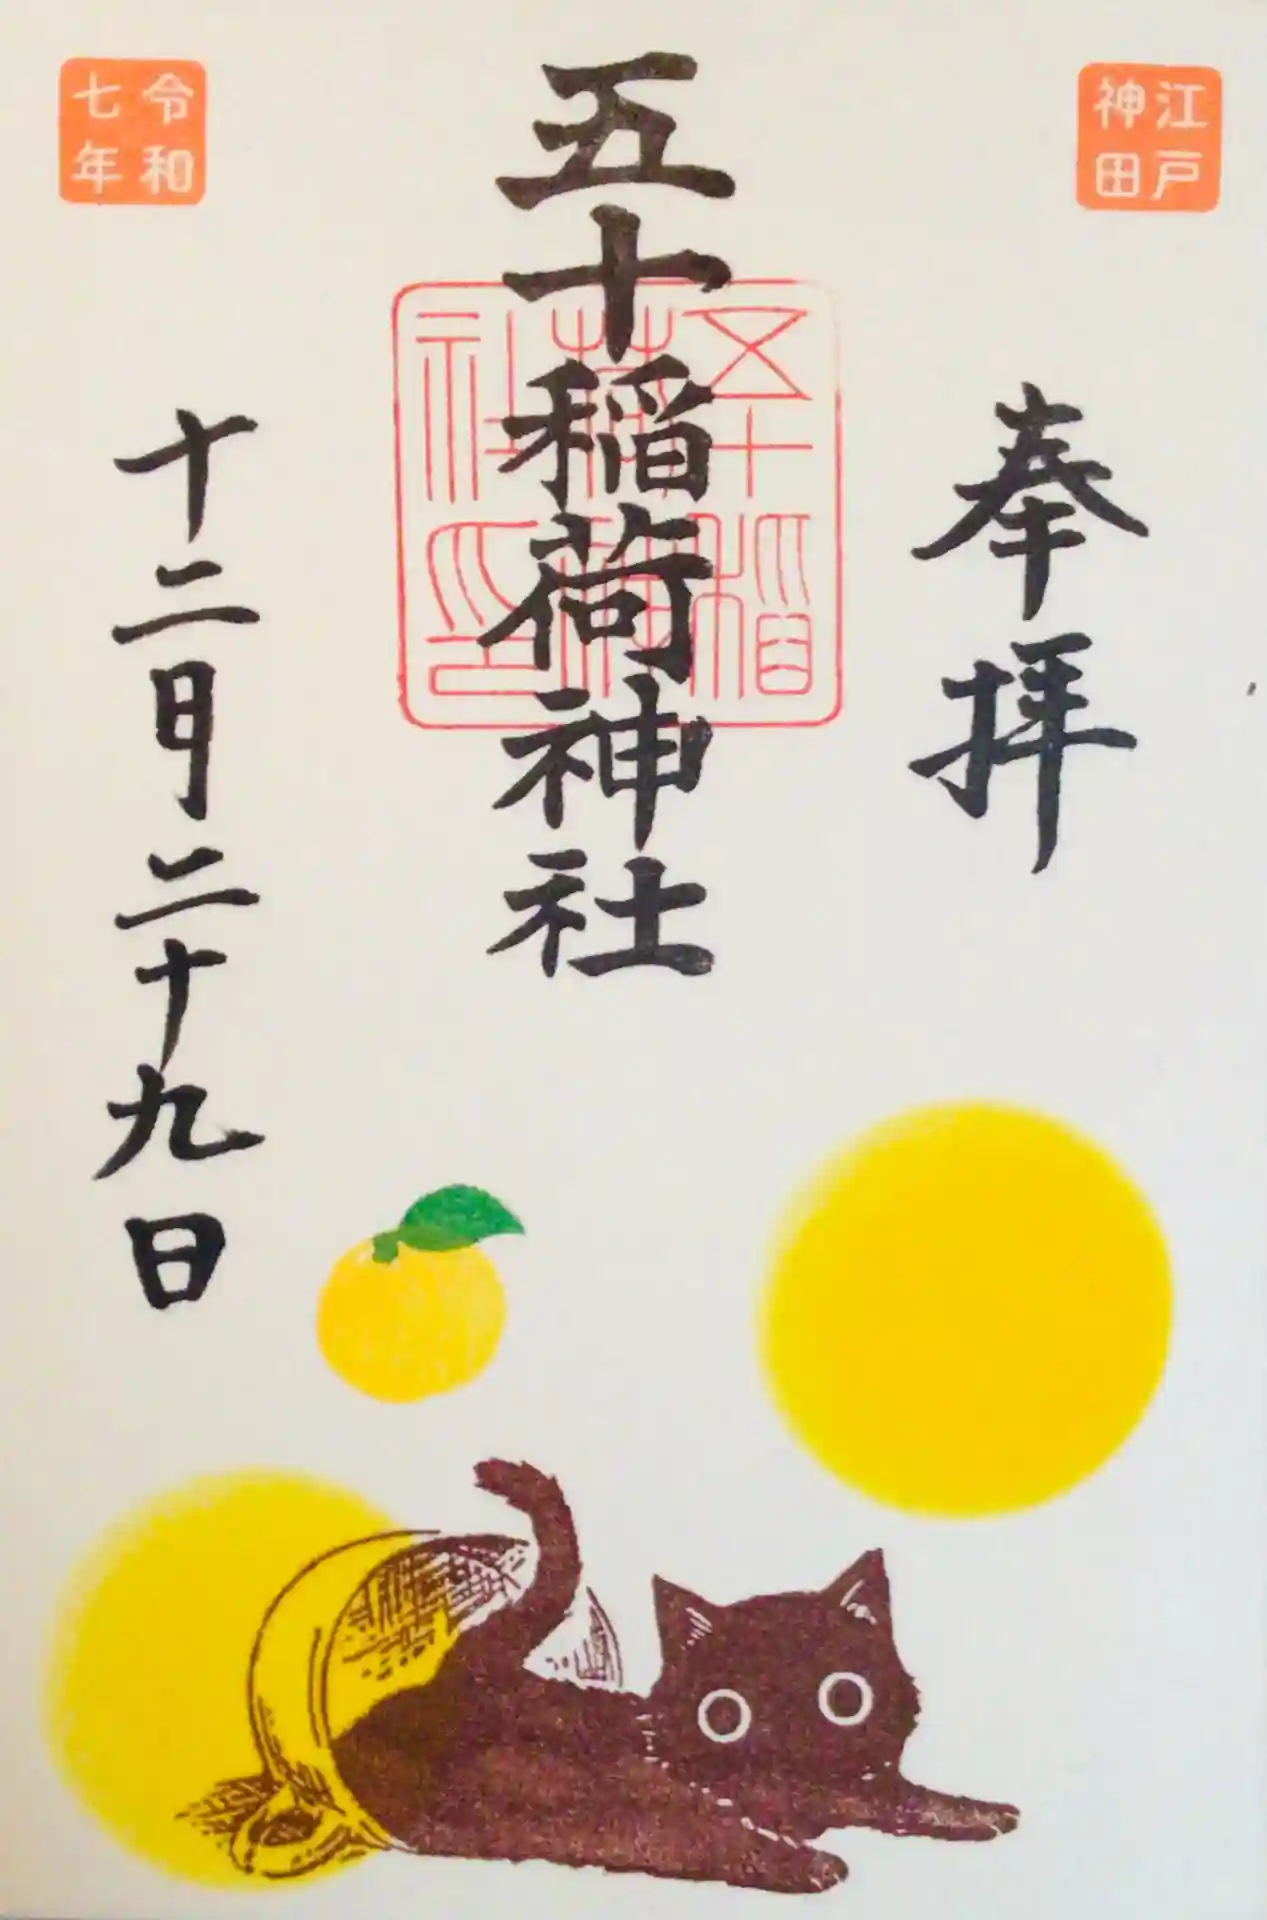 江戸
神田
奉拝
五十稲荷神社
五十稲
荷神
社印
令和
七年
十二月二十九日